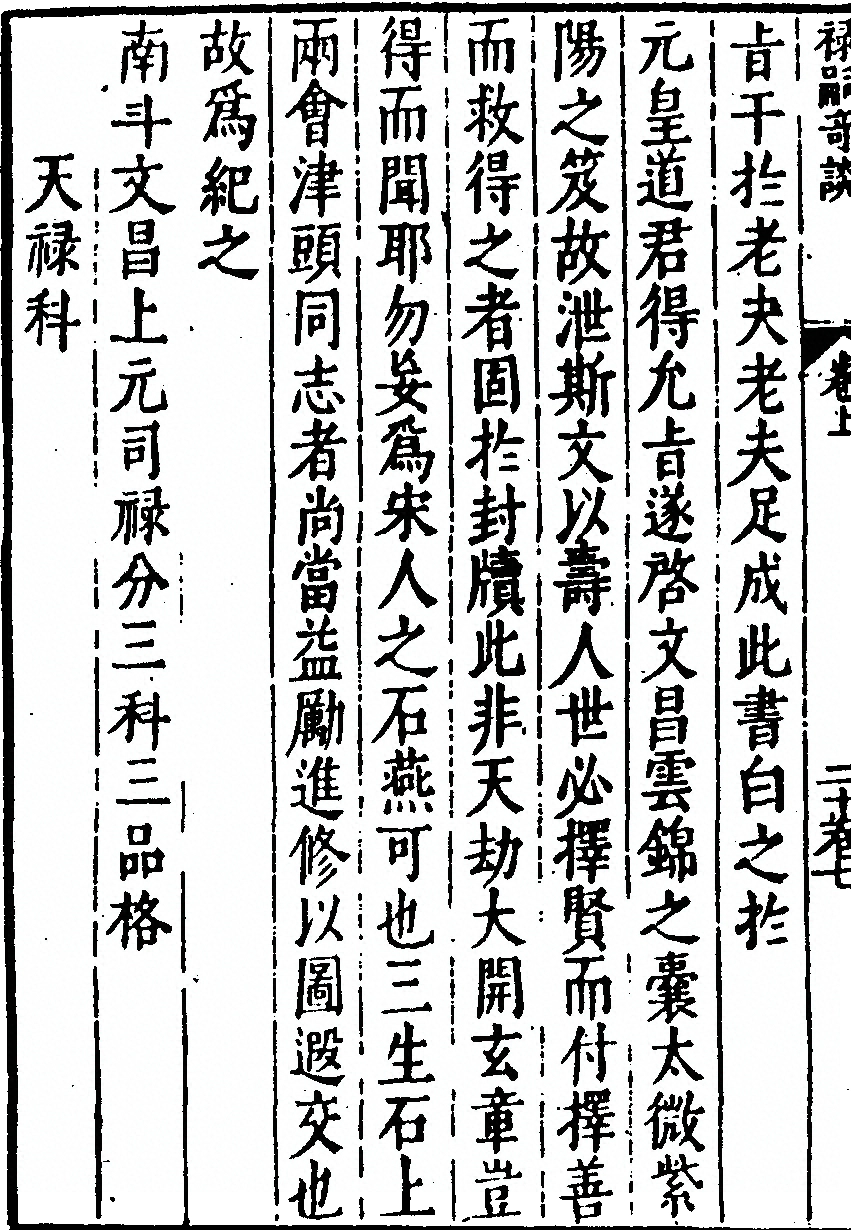 卷上
旨干於老夫老夫足成此書白之於
元皇道君得允旨遂啓文昌雲錦之囊太微紫
陽之笈故泄斯文以壽人世必擇賢而付擇善
而救得之者固於封牘此非天劫大開玄章豈
得而聞耶勿妄爲宋人之石燕可也三生石上
兩會津頭同志者尚當益勵進修以圖遐交也
故爲紀之
南斗文昌上元司禄分三科三品格
天禄科